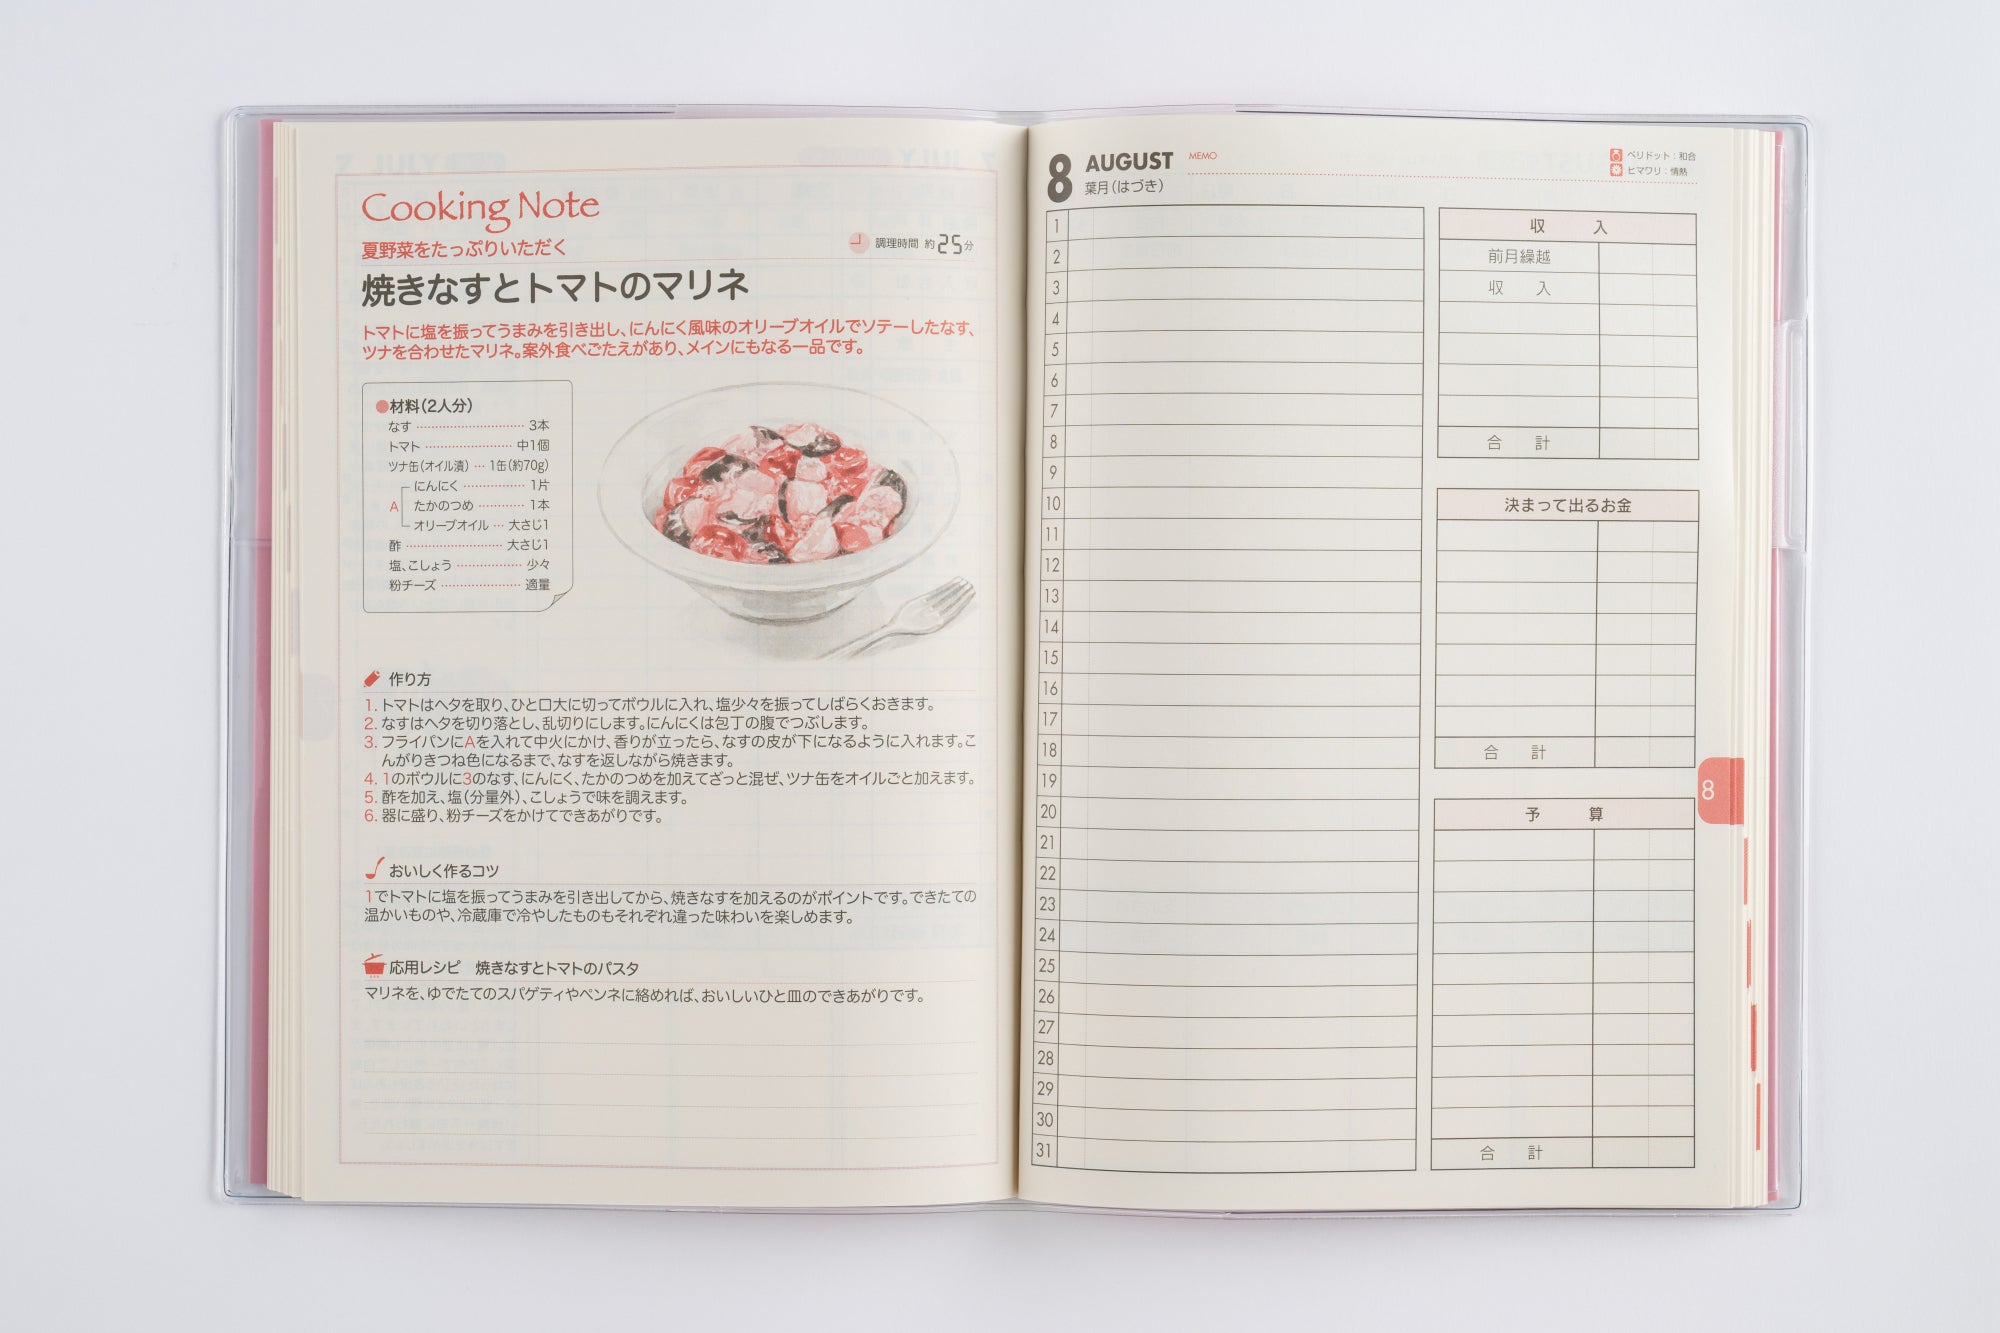 Cooking Note
夏野菜をたっぷりいただく
調理時間 約25分
焼きなすとトマトのマリネ
トマトに塩を振ってうまみを引き出し、にんにく風味のオリーブオイルでソテーしたなす、
ツナを合わせたマリネ。案外食べごたえがあり、メインにもなる一品です。
●材料(2人分)
なす ……… 3本
トマト ……… 中1個
ツナ缶(オイル漬) … 1缶(約70g)
にんにく ……… 1片
A たかのつめ ……… 1本
オリーブオイル … 大さじ1
酢 ……… 大さじ1
塩、こしょう ……… 少々
粉チーズ ……… 適量
作り方
1. トマトはヘタを取り、ひと口大に切ってボウルに入れ、塩少々を振ってしばらくおきます。
2. なすはヘタを切り落とし、乱切りにします。にんにくは包丁の腹でつぶします。
3. フライパンにAを入れて中火にかけ、香りが立ったら、なすの皮が下になるように入れます。こ
んがりきつね色になるまで、なすを返しながら焼きます。
4. 1のボウルに3のなす、にんにく、たかのつめを加えてざっと混ぜ、ツナ缶をオイルごと加えます。
5. 酢を加え、塩(分量外)、こしょうで味を調えます。
6. 器に盛り、粉チーズをかけてできあがりです。
おいしく作るコツ
1でトマトに塩を振ってうまみを引き出してから、焼きなすを加えるのがポイントです。できたての
温かいものや、冷蔵庫で冷やしたものもそれぞれ違った味わいを楽しめます。
応用レシピ 焼きなすとトマトのパスタ
マリネを、ゆでたてのスパゲティやペンネに絡めれば、おいしいひと皿のできあがりです。
8 AUGUST
葉月(はづき)
MEMO
ペリドット:和合
ヒマワリ:情熱
1
2
3
4
5
6
7
8
9
10
11
12
13
14
15
16
17
18
19
20
21
22
23
24
25
26
27
28
29
30
31
収 入
前月繰越
収 入
合 計
決まって出るお金
合 計
予 算
合 計
8